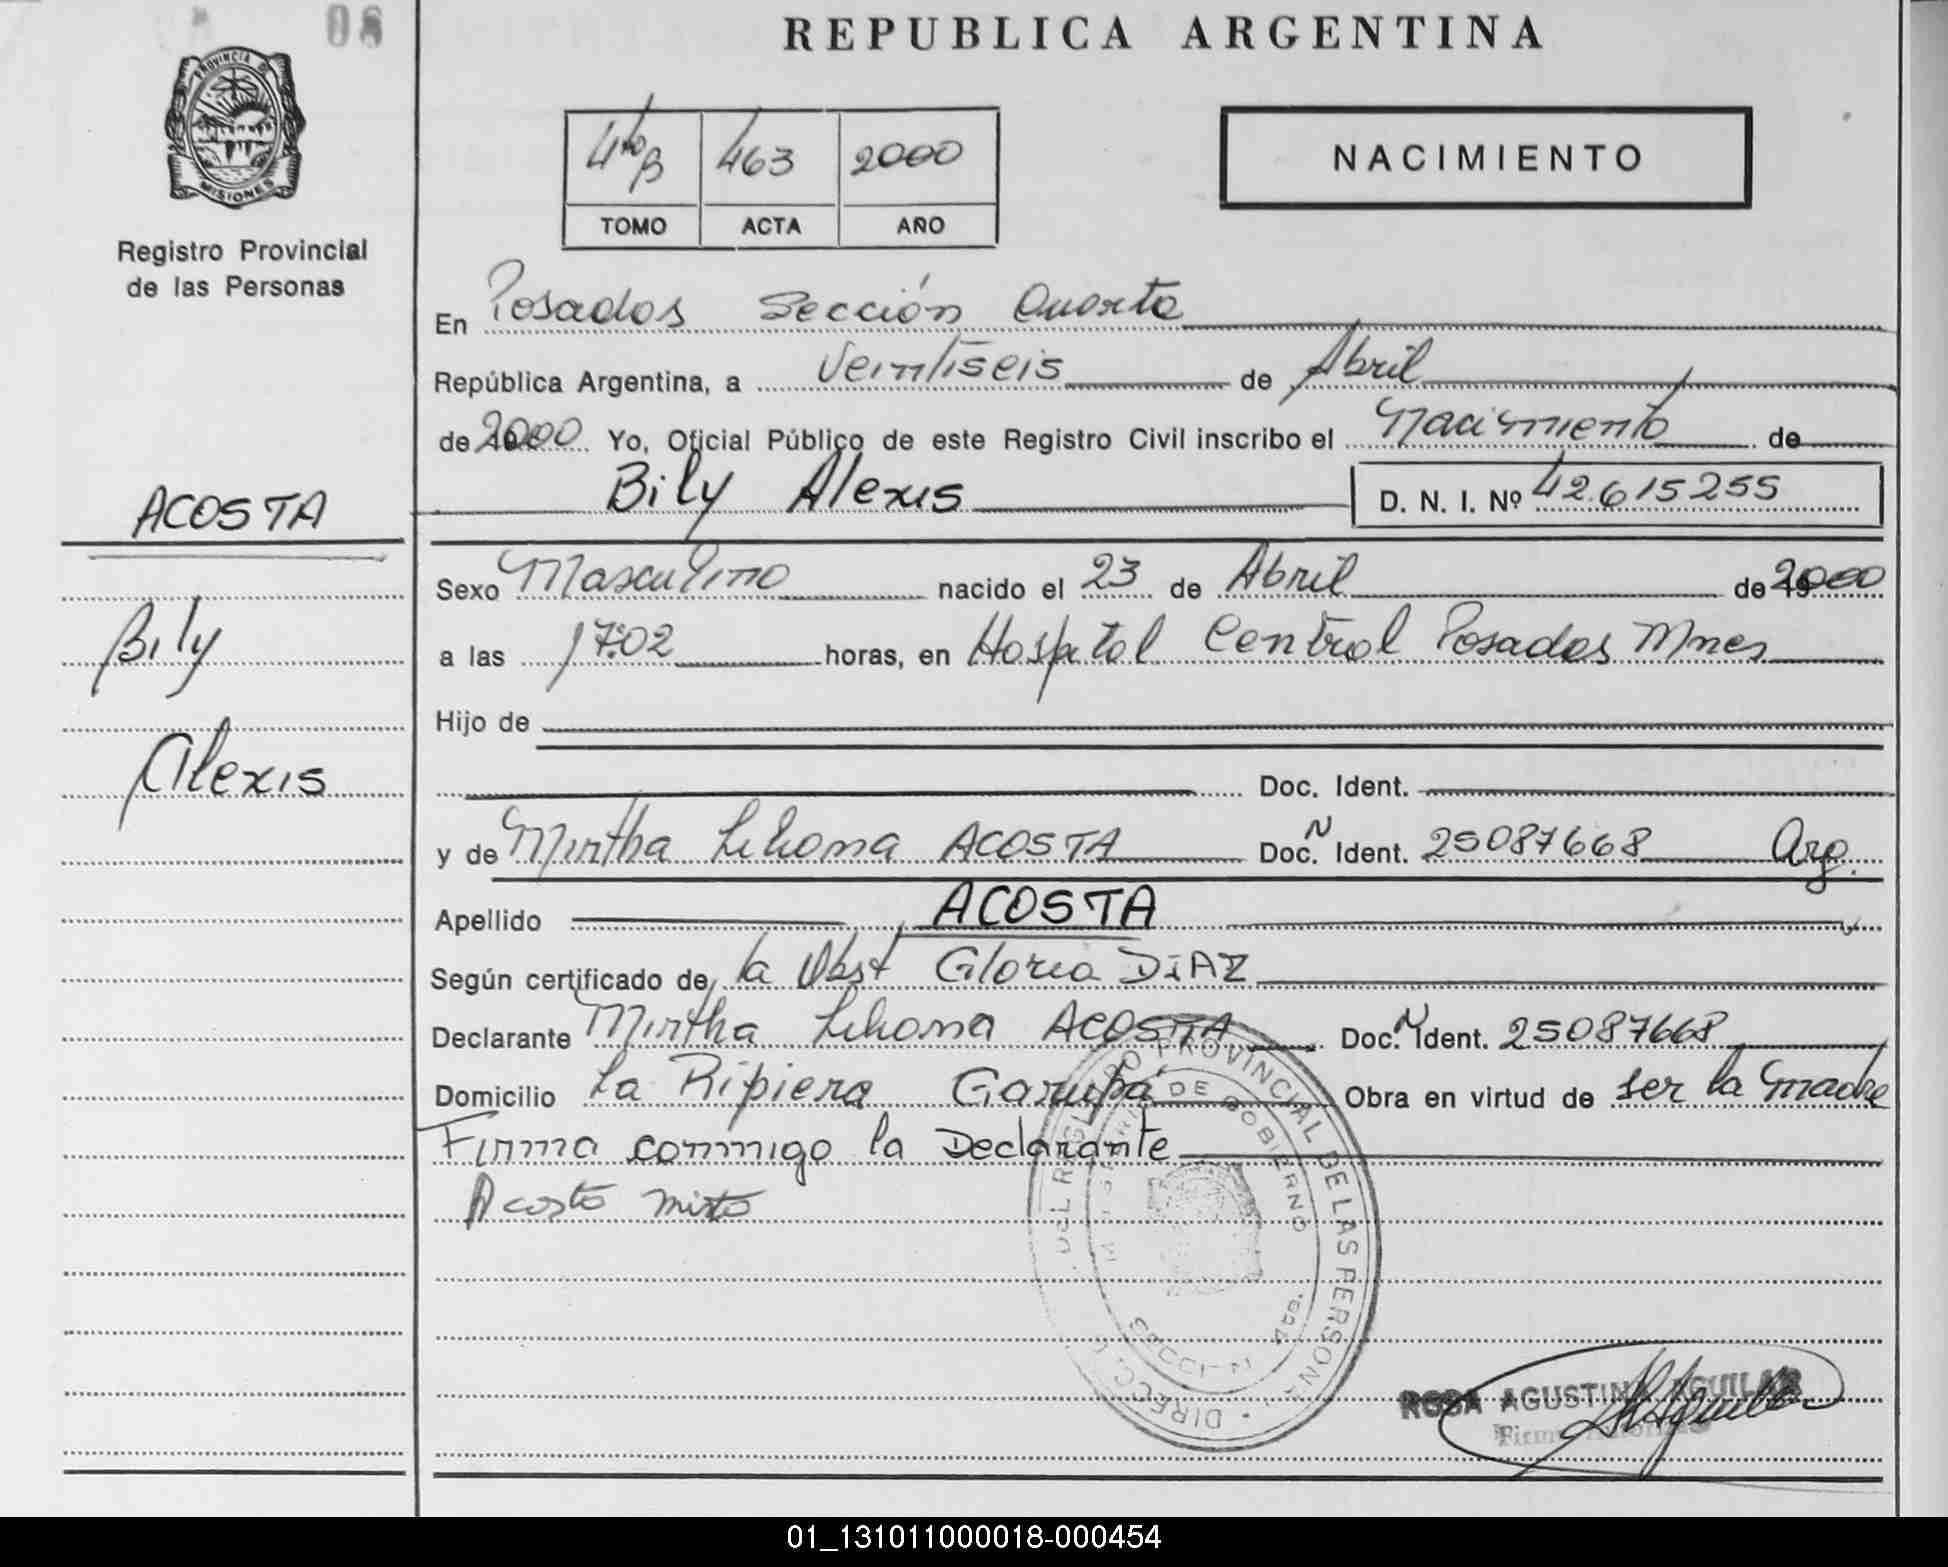 08
REPUBLICA ARGENTINA
PROVINCIA DE
MISIONES
Registro Provincial
de las Personas
4to B 463 2000
TOMO ACTA AÑO
NACIMIENTO
En Posadas Sección Cuarta
República Argentina, a Veintiseis de Abril
de 2000 Yo, Oficial Público de este Registro Civil inscribo el Nacimiento de
Bily Alexis D. N. I. Nº 42.615255
ACOSTA
Bily
Alexis
Sexo Masculino nacido el 23 de Abril de 2000
a las 17:02 horas, en Hospital Central Posadas Mnes
Hijo de
Doc. Ident.
y de Mirtha ACOSTA Doc. N Ident. 25087668 Arg.
Apellido ACOSTA
Según certificado de la Obst Gloria DIAZ
Declarante Mirtha ACOSTA Doc. N Ident. 25087668
Domicilio La Ripiera Garupá Obra en virtud de ser la madre
Firma conmigo la Declarante
Acosta
DEL REGISTRO PROVINCIAL DE LAS PERSONAS
DE GOBIERNO
ROSA AGUSTINA AGUILAR
01_131011000018-000454